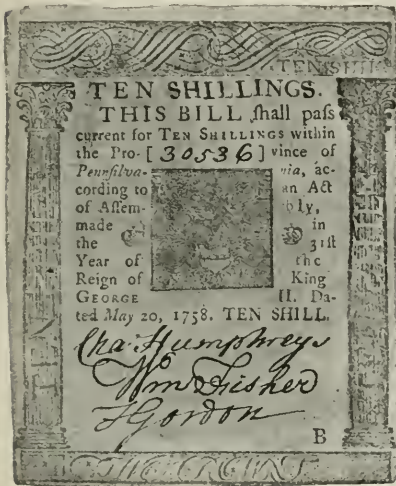 TEN SHILLINGS.
THIS BILL ſhall paſs
current for TEN SHILLINGS within
the Pro- [ 30536 ] vince of
Pennſilva- nia, ac-
cording to an Act
of Aſſem- bly,
made in
the 31ſt
Year of the
Reign of King
GEORGE II. Da-
ted May 20, 1758. TEN SHILL.
Cha Humphreys
Wm Fisher
T Gordon
B